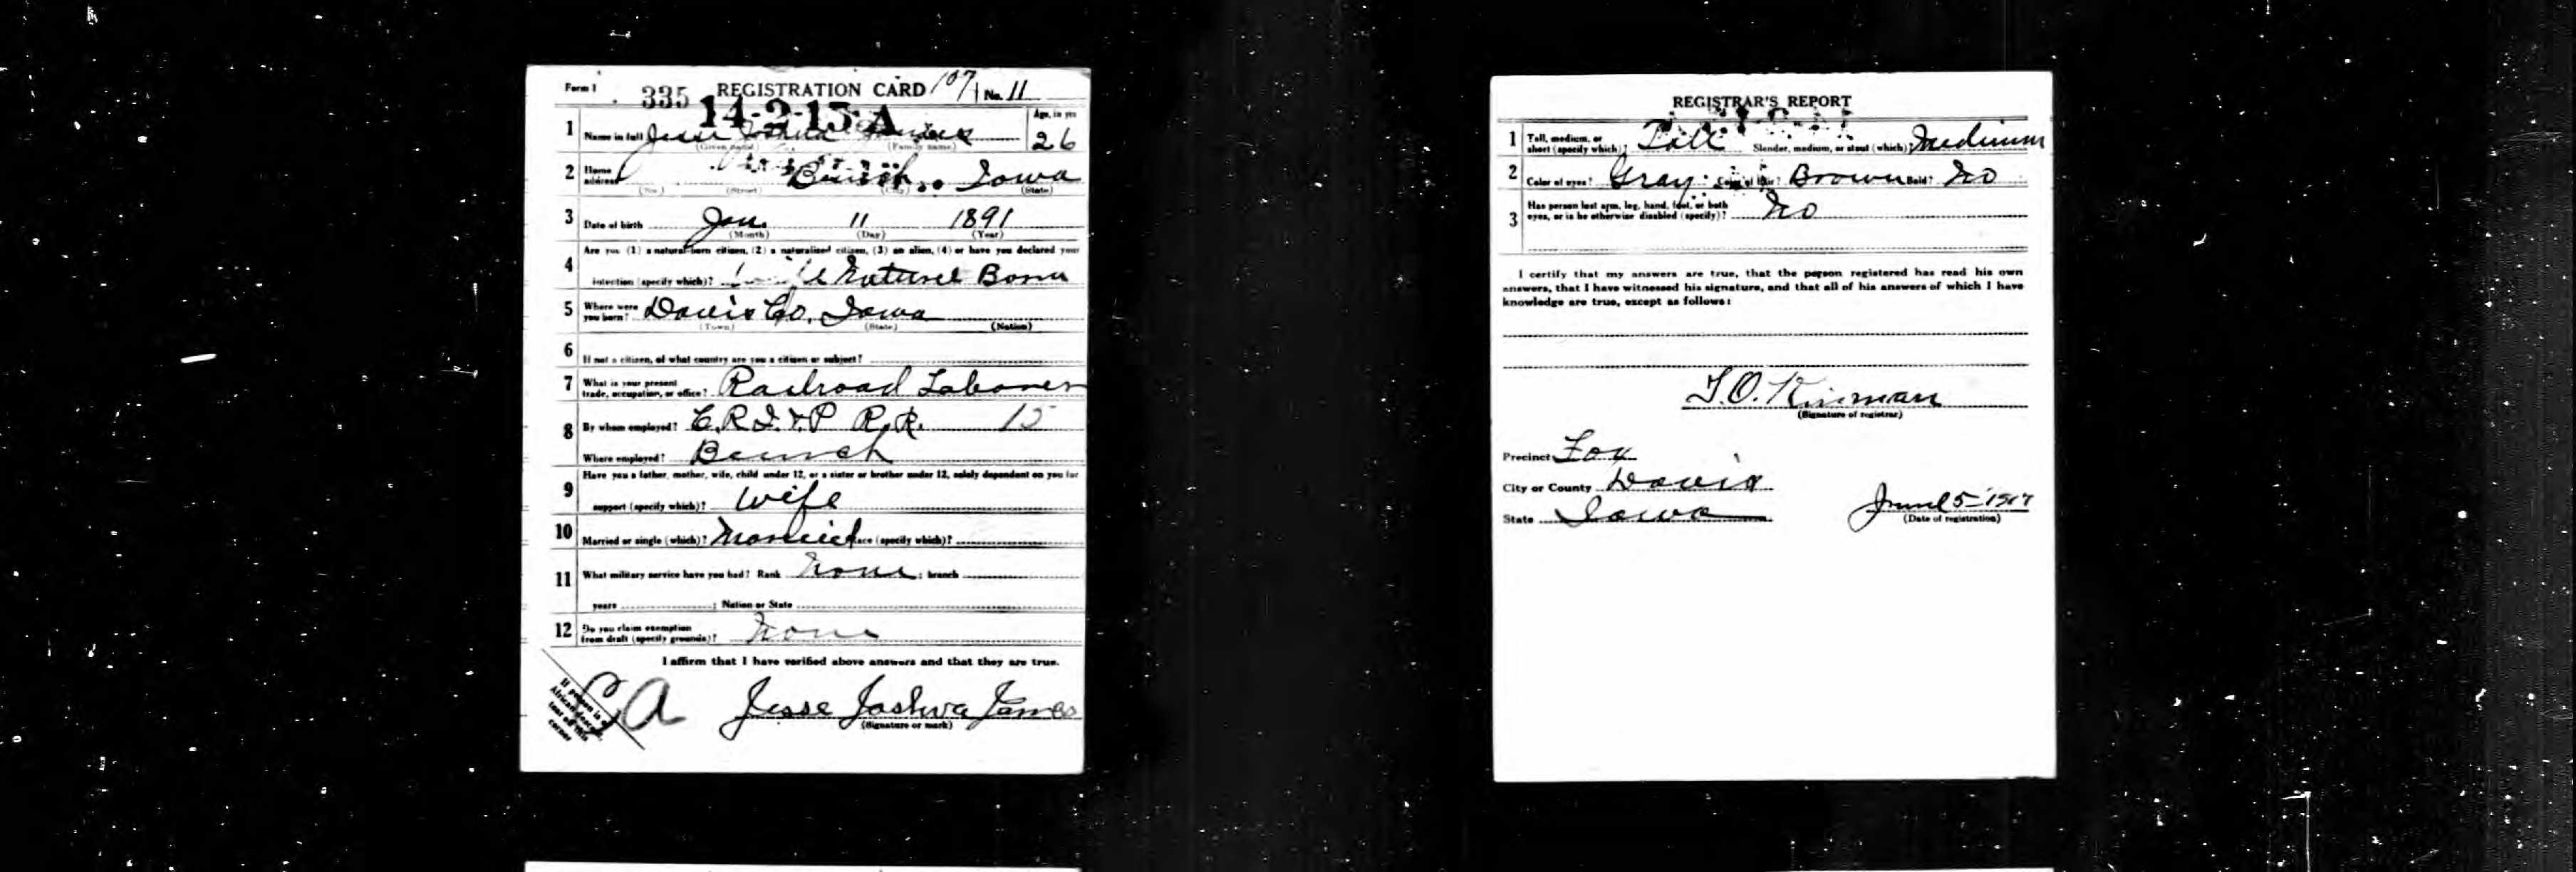 Form 1 335 REGISTRATION CARD 107 No. 11
14-2-15-A
1 Name in full Jesse Joshua James Age, in yrs
(Given name) (Family name) 26
2 Home address Iowa
(No.) (Street) (City) (State)
3 Date of birth Jan. 11 1891
(Month) (Day) (Year)
Are you (1) a natural-born citizen, (2) a naturalized citizen, (3) an alien, (4) or have you declared your
4 intention (specify which)?
5 Where were you born? Davis Co. Iowa
(Town) (State) (Nation)
6 If not a citizen, of what country are you a citizen or subject?
7 What is your present
trade, occupation, or office? Railroad Laborer
8 By whom employed? C.R.I.&P R.R. 15
Where employed?
Have you a father, mother, wife, child under 12, or a sister or brother under 12, solely dependent on you for
9 support (specify which)? Wife
10 Married or single (which)? Married Race (specify which)?
11 What military service have you had? Rank None ; branch
years ; Nation or State
12 Do you claim exemption
from draft (specify grounds)? None
I affirm that I have verified above answers and that they are true.
If person is of
African descent,
tear off this
corner
Jesse Joshua James
(Signature or mark)
REGISTRAR'S REPORT
1 Tall, medium, or
short (specify which)? Tall Slender, medium, or stout (which)? Medium
2 Color of eyes? Gray Color of hair? Brown Bald? No
3 Has person lost arm, leg, hand, foot, or both
eyes, or is he otherwise disabled (specify)? No
I certify that my answers are true, that the person registered has read his own
answers, that I have witnessed his signature, and that all of his answers of which I have
knowledge are true, except as follows:
T.O. Kinman
(Signature of registrar)
Precinct Fox
City or County Davis
State Iowa
June 5-1917
(Date of registration)